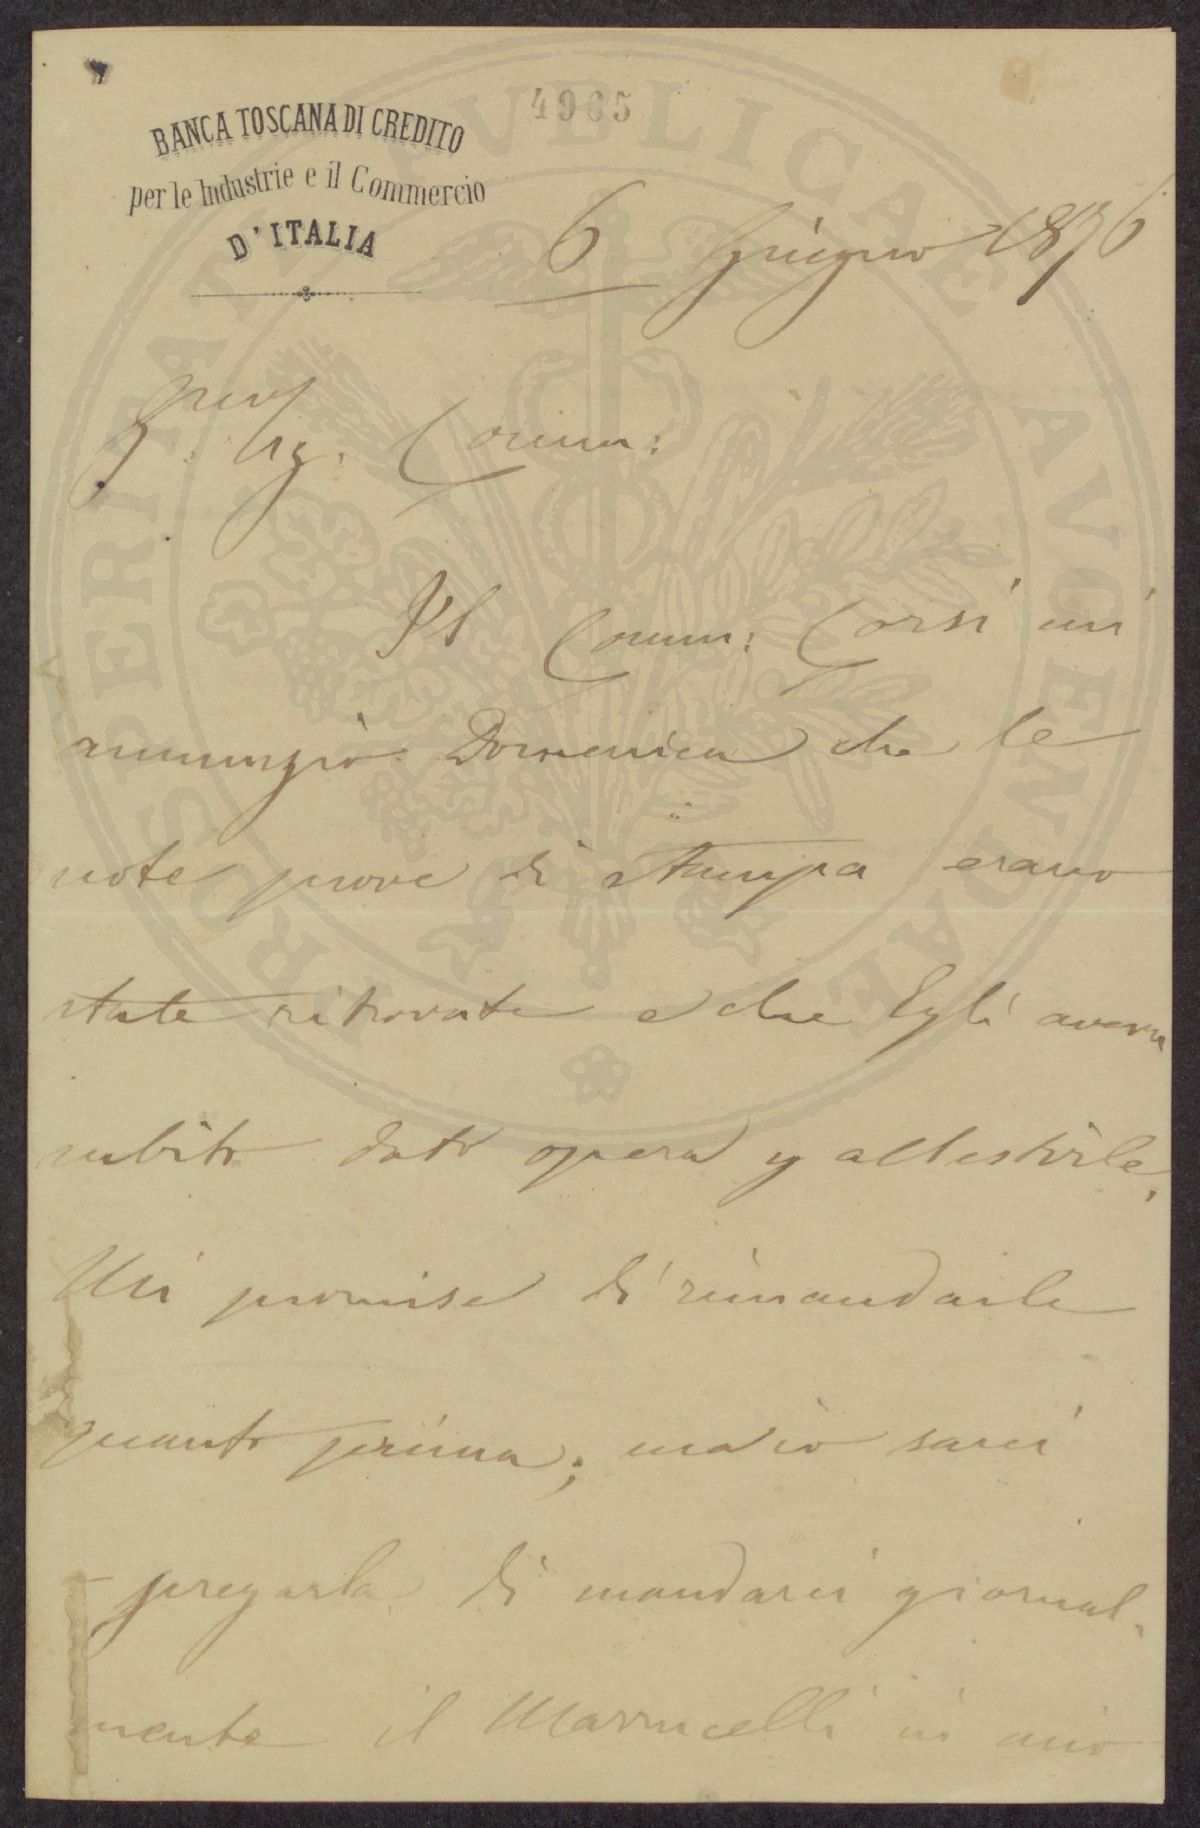 4965
BANCA TOSCANA DI CREDITO
per le Industrie e il Commercio
D'ITALIA
6 Giugno 1876
Sig. Comm:
Il Comm: Corsi mi
annunziò Domenica che le
note prove di stampa erano
state ritrovate e che Egli aveva
subito dato opera p allestirle,
Mi promise di rimandarle
quanto prima; ma io sarei
pregarla di mandarci giornal-
mente il Marrucelli in mio
PROSPERITATI PUBLICAE AUGENDAE